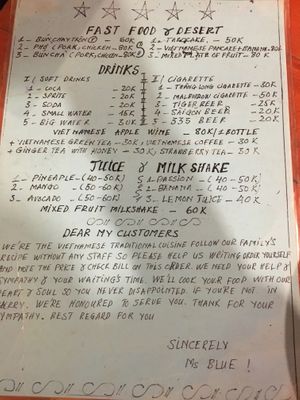 FAST FOOD & DESERT
1 - BUN CHAY TRON - 60K 1 - PANCAKE - 50K
2 - PHỞ (PORK, CHICKEN - 80K 2 - VIETNAMESE PANCAKE + BANANA - 80K
3 - BUN CHA (PORK, CHICKEN - 80K 3 - MIXED FRUIT - 80K
DRINKS
I / SOFT DRINKS I / CIGARETTE
1 - COCA - 20K 1 - THĂNG LONG CIGARETTE - 30K
2 - SPRITE - 20K 2 - MALBHORO CIGARETTE - 50K
3 - SODA - 20K 3 - TIGER BEER - 25K
4 - SMALL WATER - 15K 4 - SAIGON BEER - 20K
5 - BIG WATER - 30K 5 - 333 BEER - 20K
VIETNAMESE APPLE WINE - 80K / 1 BOTTLE
+ VIETNAMESE GREEN TEA - 30K, VIETNAMESE COFFEE - 30K
+ GINGER TEA WITH HONEY - 30K, STRAWBERRY TEA - 30K
JUICE & MILK SHAKE
1 - PINEAPPLE - (40-50K) 1 PASSION - (40-50K)
2 - MANGO - (50-60K) 2 - BANANA - (40-50K)
3 - AVOCADO - (50-60K) 3 - LEMON JUICE - 40K
MIXED FRUIT MILKSHAKE - 60K
DEAR MY CUSTOMERS
WE'RE THE VIETNAMESE TRADITIONAL CUISINE FOLLOW OUR FAMILY'S
RECIPE WITHOUT ANY STAFF SO PLEASE HELP US WRITING ORDER YOURSELF
AND NOTE THE PRICE & CHECK BILL ON THIS ORDER. WE NEED YOUR HELP &
SYMPATHY & YOUR WAITING'S TIME. WE'LL COOK YOUR FOOD WITH OUR
HEART & SOUL SO YOU NEVER DISAPPOINTED IF YOU'RE NOT IN
HURRY. WE'RE HONOURED TO SERVE YOU. THANK FOR YOUR
SYMPATHY. BEST REGARD FOR YOU
SINCERELY
MS BLUE !